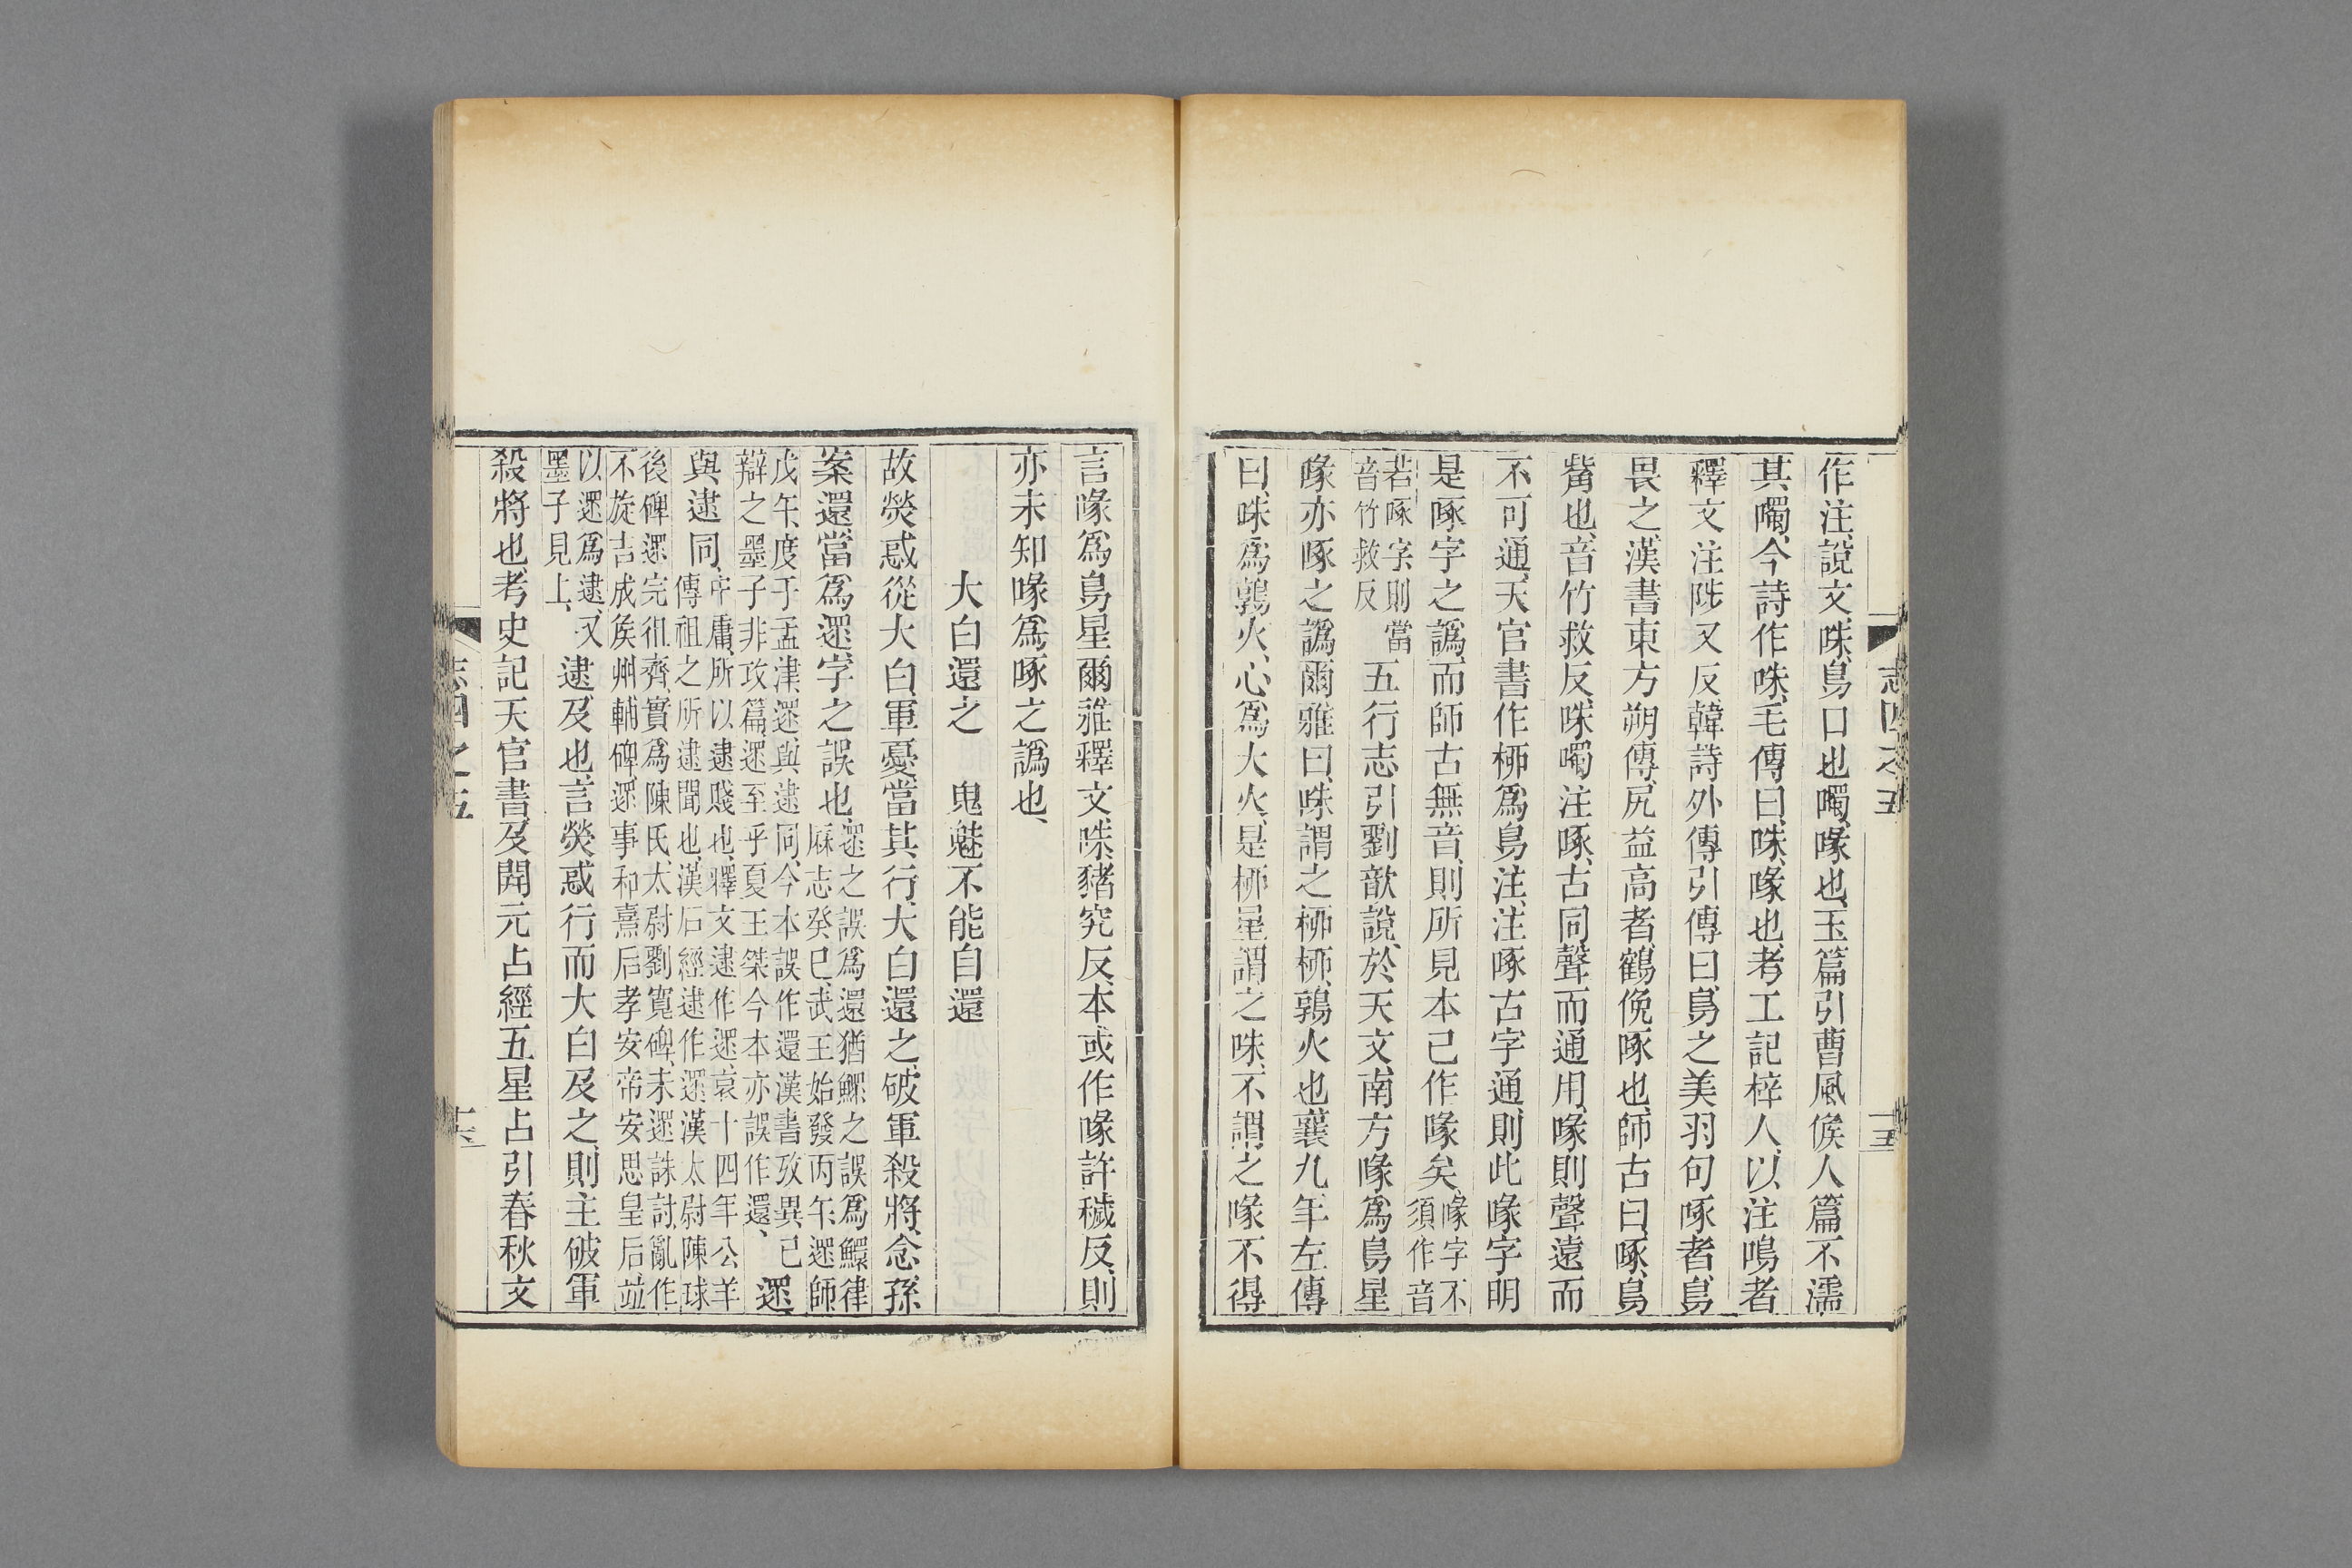 志四之五
十五
作注、說文、咮、鳥口也、噣、喙也、玉篇引曹風候人篇不濡
其噣、今詩作咮、毛傳曰、咮、喙也、考工記梓人、以注鳴者、
釋文注陟又反、韓詩外傳引傳曰、鳥之美羽句啄者、鳥
畏之、漢書東方朔傳、尻益高者、鶴俛啄也、師古曰、啄、鳥
觜也、音竹救反、咮噣注啄、古同聲而通用、喙則聲遠而
不可通、天官書作柳爲鳥注、注啄古字通、則此喙字明
是啄字之譌、而師古無音、則所見本已作喙矣、喙字不須作音
若啄字則當音竹救反五行志引劉歆說、於天文、南方喙爲鳥星、
喙亦啄之譌、爾雅曰、咮謂之柳、柳、鶉火也、襄九年左傳
曰、咮爲鶉火、心爲大火、是柳星謂之咮、不謂之喙、不得
言喙爲鳥星、爾雅釋文、咮、豬究反、本或作喙、許穢反、則
亦未知喙爲啄之譌也、
大白還之　鬼魅不能自還
故熒惑從大白、軍憂、當其行、大白還之、破軍殺將、念孫
案、還、當爲遝、字之誤也、遝之誤爲還、猶鰥之誤爲鱞、律厤志癸巳、武王始發、丙午、遝師、
戊午、度于孟津、遝、與逮同、今本誤作還、漢書攷異已辯之、墨子非攻篇、遝至乎夏王桀、今本亦誤作還、遝、
與逮同、中庸、所以逮賤也、釋文、逮作遝、哀十四年公羊傳、祖之所逮聞也、漢石經逮作遝、漢太尉陳球
後碑、遝完徂齊、實爲陳氏、太尉劉寬碑、未遝誅討、亂作不旋、吉成侯州輔碑、遝事和熹后孝安帝安思皇后、竝
以遝爲逮、又墨子見上、逮、及也、言熒惑行而大白及之、則主破軍
殺將也、考史記天官書、及開元占經五星占引春秋文
志四之五
十六